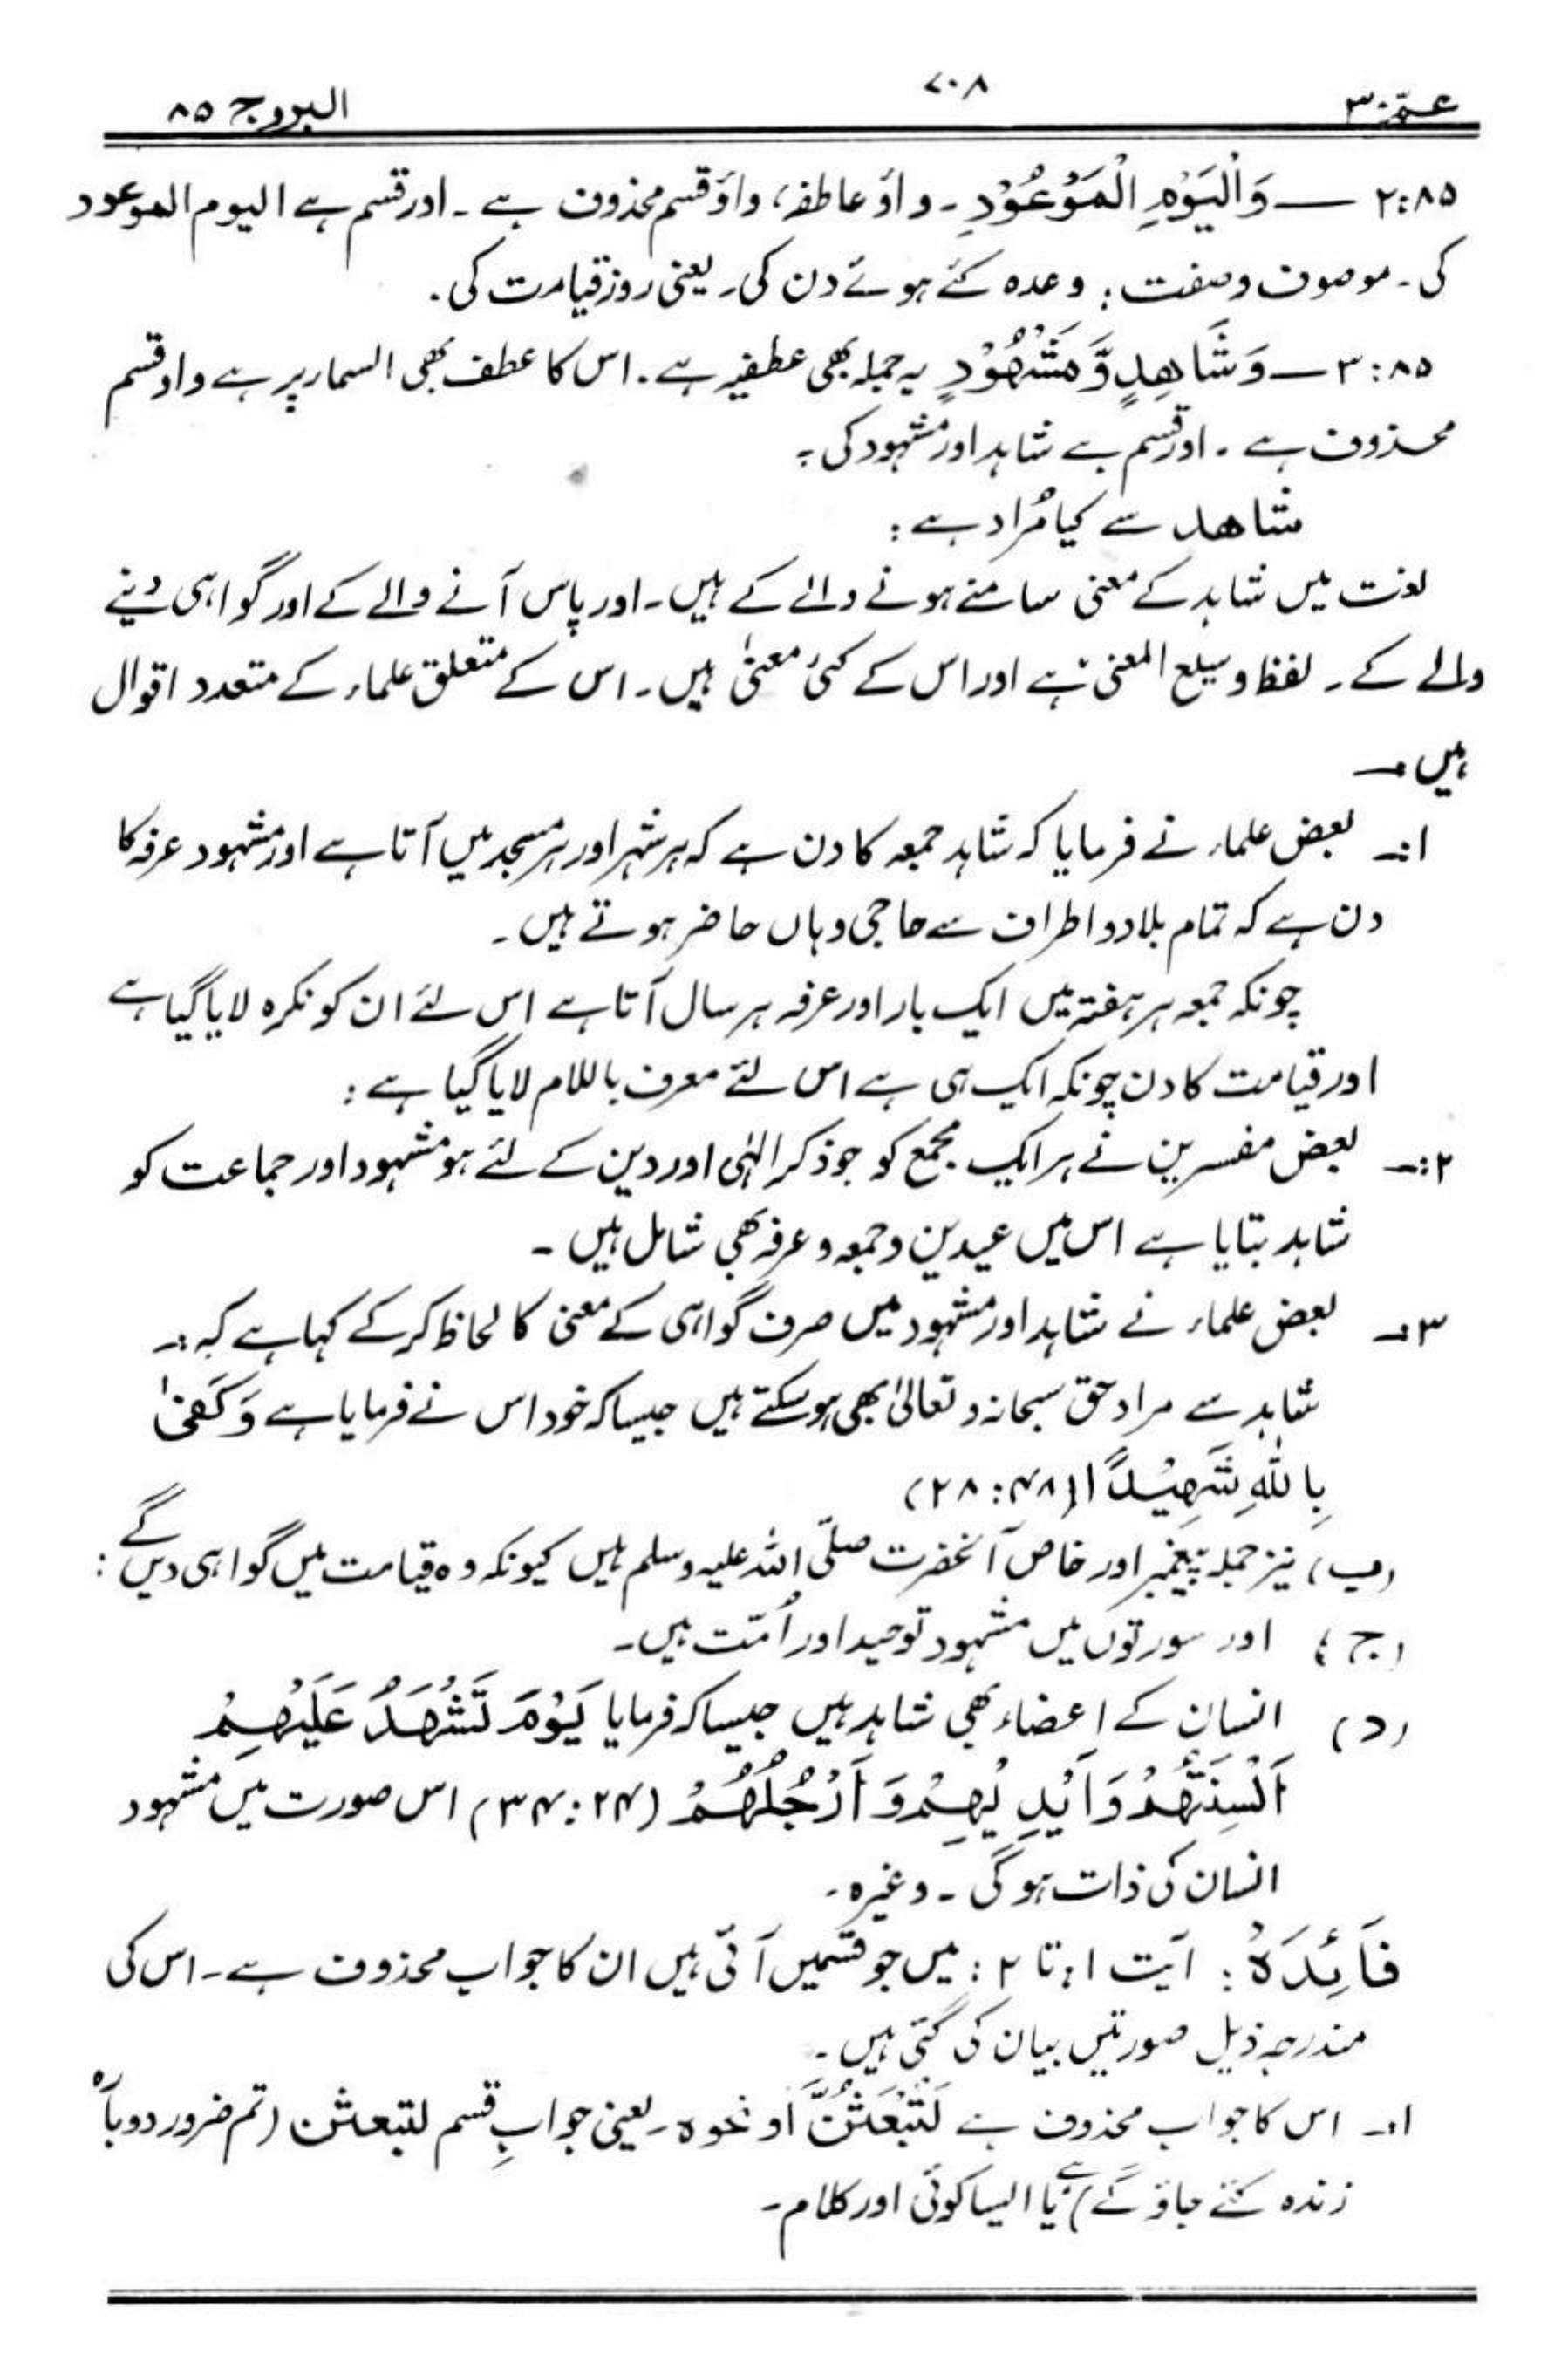 عمّ ۳۰ ۷۰۸ البروج ۸۵
۸۵:۲ — وَالْيَوْمِ الْمَوْعُوْدِ ۔ واؤ عاطفہ، واؤ قسم محذوف ہے ۔ اور قسم ہے الیوم الموعود
کی ۔ موصوف وصفت؛ وعدہ کئے ہوئے دن کی۔ یعنی روز قیامت کی۔
۸۵:۳ — وَشَاهِدٍ وَّمَشْهُوْدٍ یہ جملہ بھی عطفیہ ہے۔ اس کا عطف بھی السماء پر ہے واو قسم
محذوف ہے ۔ اور قسم ہے شاہد اور مشہود کی ؛
شاهد سے کیا مُراد ہے :
لغت میں شاہد کے معنی سامنے ہونے والے کے ہیں۔ اور پاس آنے والے کے اور گواہی دینے
والے کے ۔ لفظ وسیع المعنیٰ ہے اور اس کے کئی معنیٰ ہیں۔ اس کے متعلق علماء کے متعدد اقوال
ہیں :۔
۱:۔ بعض علماء نے فرمایا کہ شاہد جمعہ کا دن ہے کہ ہر شہر اور ہر مسجد میں آتا ہے اور مشہود عرفہ کا
دن ہے کہ تمام بلاد و اطراف سے حاجی وہاں حاضر ہوتے ہیں۔
چونکہ جمعہ ہر ہفتہ میں ایک بار اور عرفہ ہر سال آتا ہے اس لئے ان کو نکرہ لایا گیا ہے
اور قیامت کا دن چونکہ ایک ہی ہے اس لئے معرف باللام لایا گیا ہے :
۲:۔ بعض مفسرین نے ہر ایک مجمع کو جو ذکر الٰہی اور دین کے لئے ہو مشہود اور جماعت کو
شاہد بتایا ہے اس میں عیدین و جمعہ و عرفہ بھی شامل ہیں ۔
۳:۔ بعض علماء نے شاہد اور مشہود میں صرف گواہی کے معنی کا لحاظ کر کے کہا ہے کہ :۔
شاہد سے مراد حق سبحانہ و تعالیٰ بھی ہو سکتے ہیں جیسا کہ خود اس نے فرمایا ہے وَكَفىٰ
بِاللّٰهِ شَهِيْدًا (۴۸:۲۸)
(ب) نیز جملہ پیغمبر اور خاص آنحضرت صلّی اللہ علیہ وسلم ہیں کیونکہ وہ قیامت میں گواہی دیں گے :
(ج) اور سورتوں میں مشہود توحید اور اُمّت ہیں۔
(د) انسان کے اعضاء بھی شاہد ہیں جیسا کہ فرمایا يَوْمَ تَشْهَدُ عَلَيْهِمْ
اَلْسِنَتُهُمْ وَاَيْدِيْهِمْ وَاَرْجُلُهُمْ (۲۴:۳۴) اس صورت میں مشہود
انسان کی ذات ہو گی ۔ وغیرہ۔
فَائِدَہُ : آیت ۱ تا ۲ : میں جو قسمیں آئی ہیں ان کا جواب محذوف ہے۔ اس کی
مندرجہ ذیل صورتیں بیان کی گئی ہیں۔
۱:۔ اس کا جواب محذوف ہے لَتُبْعَثُنَّ او نحوہ ۔ یعنی جوابِ قسم لتبعثن (تم ضرور دوبارہ
زندہ کئے جاؤ گے) ہے یا ایسا کوئی اور کلام۔